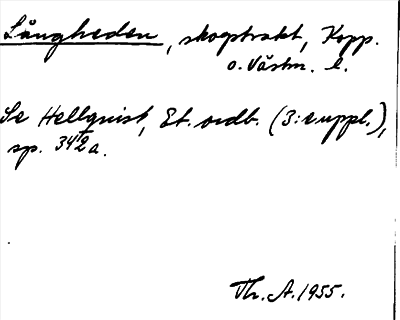 Långheden, skogstrakt, Kopp.
o. Västm. l.
Se Hellquist, Et. ordb. (3:e uppl.),
sp. a.
Th. A. 1955.